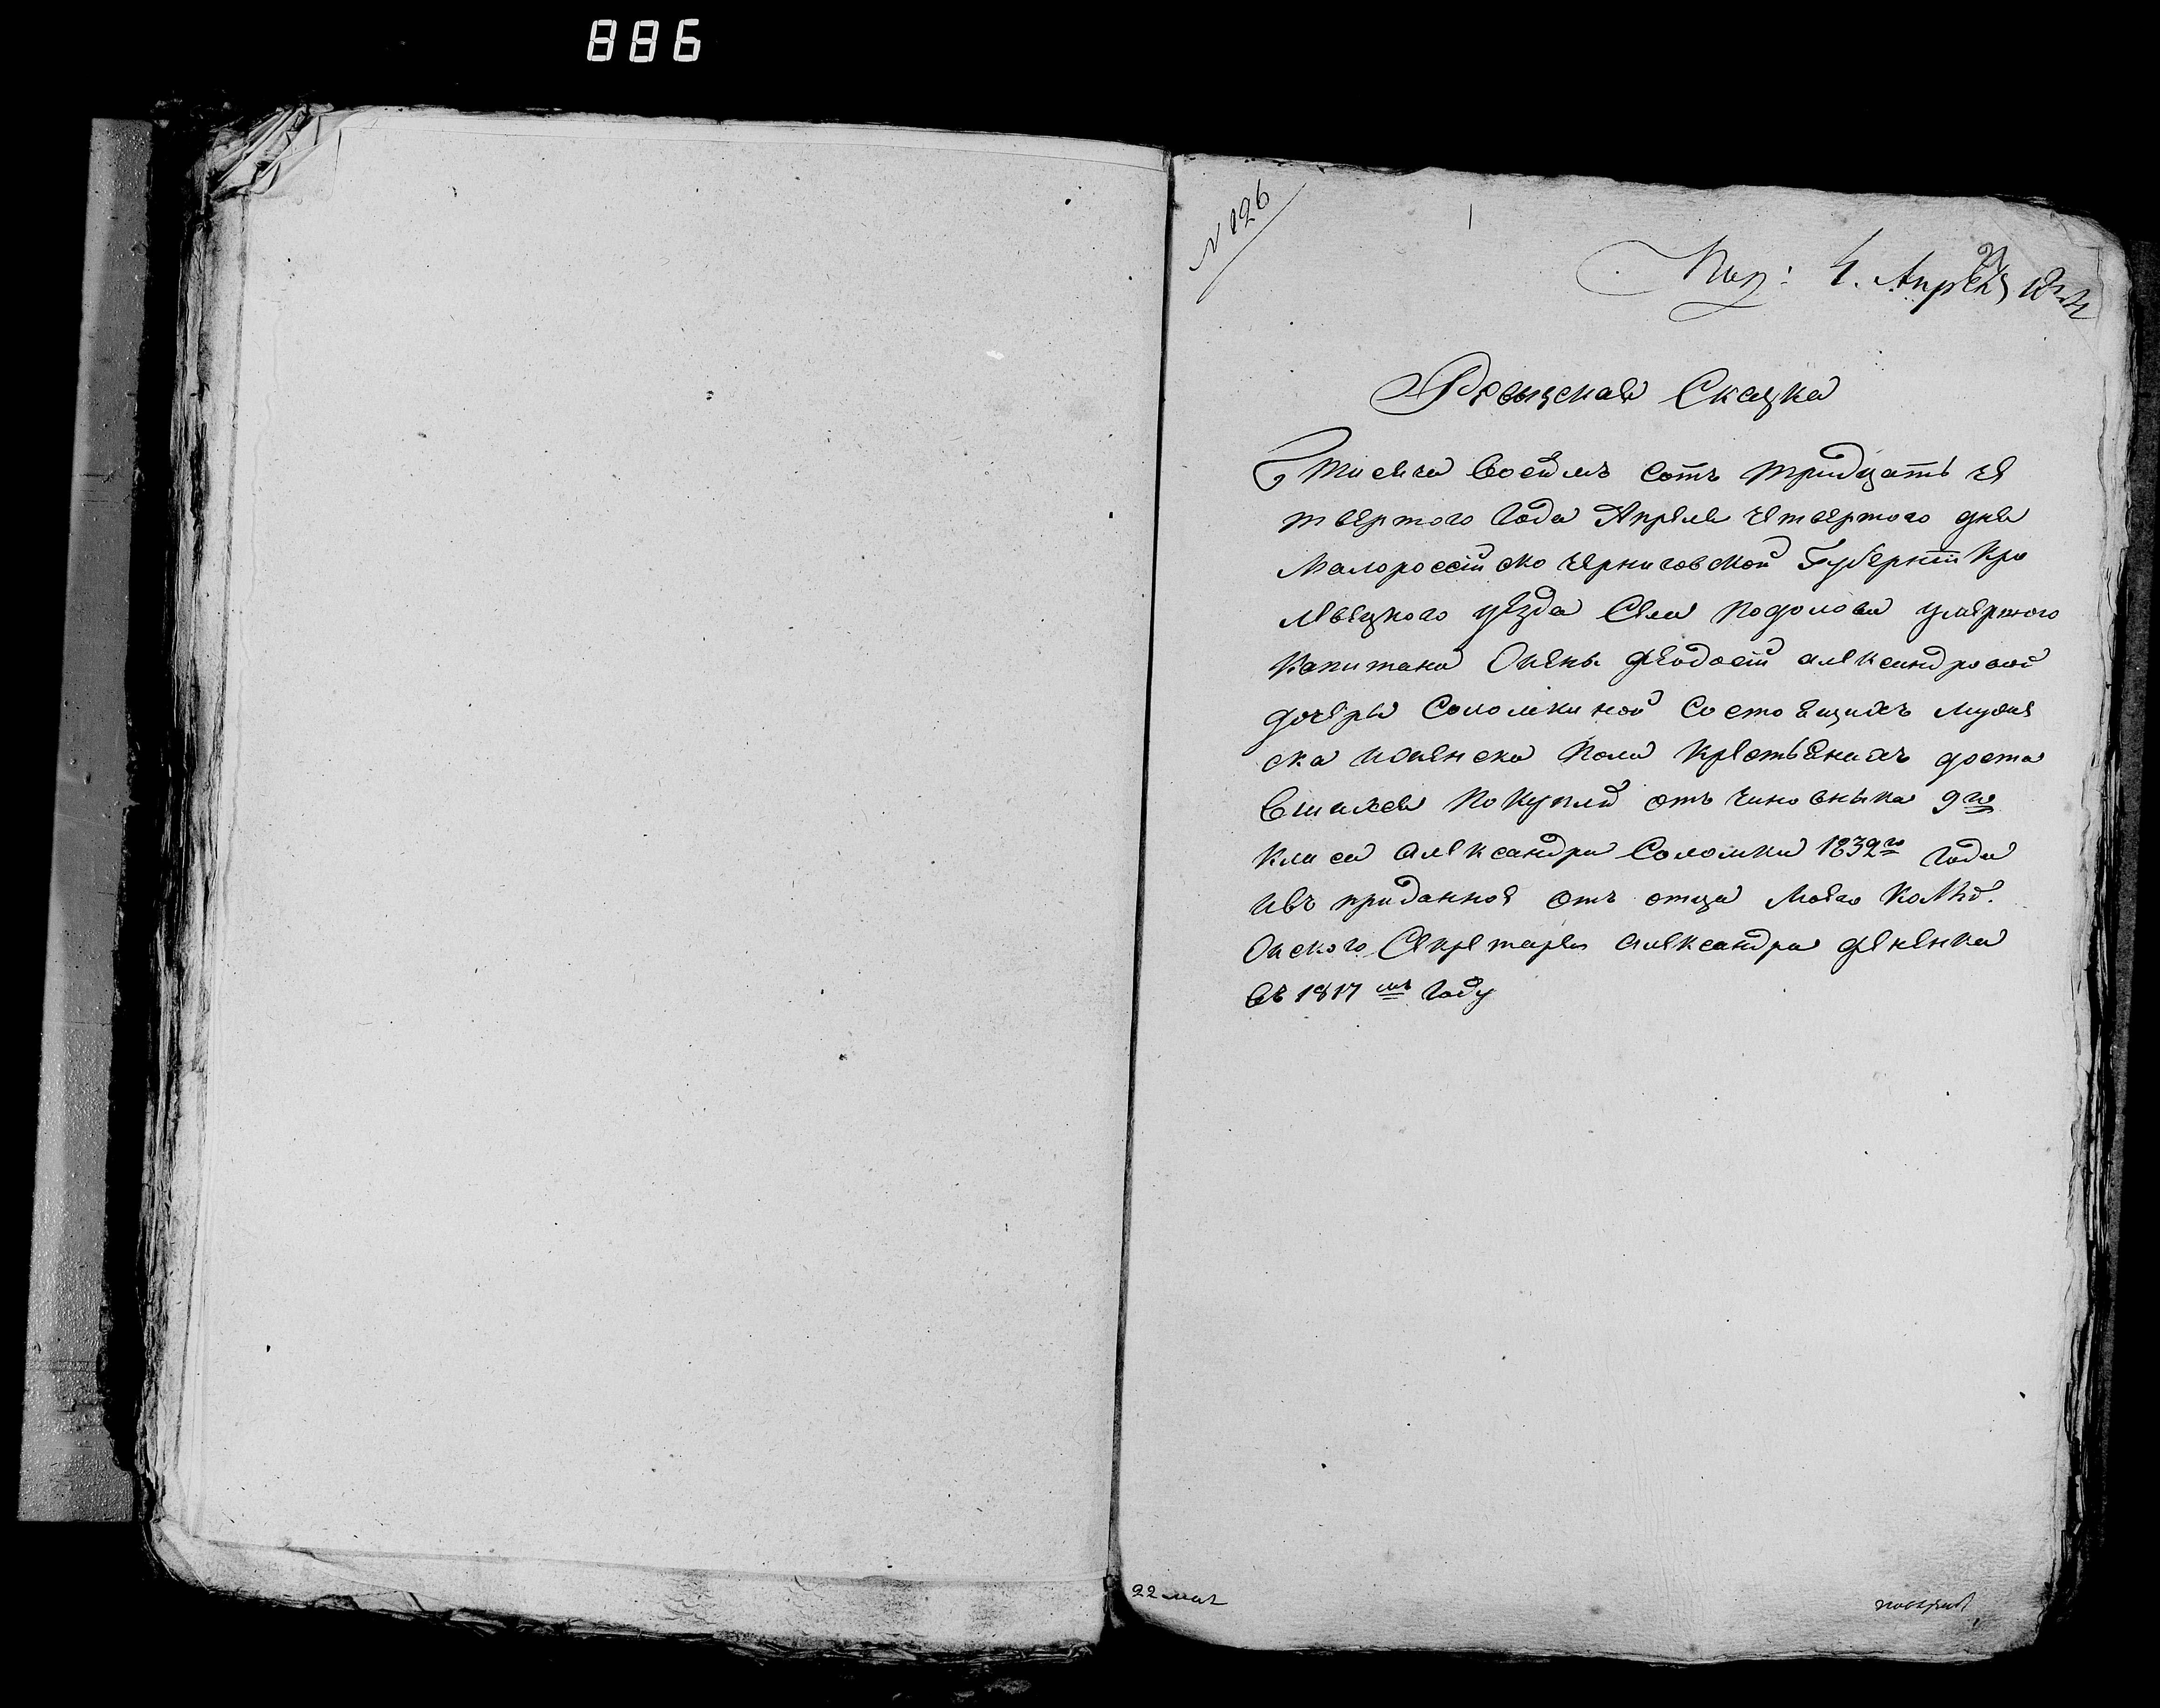 886
N 126
Пол: 4. Апреля 1834
Ревызская Сказка
Тисеча восемъ сотъ тридцать че
твертого года Апреля четвертого дня
Малороссійско черниговской Губерніи Кро
левецкого уезда Села Подолова умертого
Капитана Жены феодосіи александровой
дочеры Соломкиной состоящихъ муже
ска иженска пола крестьянахъ доста
вшихся покуплы отъ чиновныка 9го
класа александра Соломки 1832го года
ивъ приданное отъ отца моего Колѣж.
жского Секретаря александра
въ 1817мъ году
22 мая